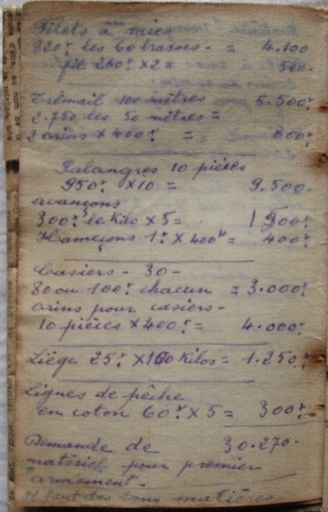 Filets à raies
820f les 60 brasses - = 4.100
fil 260f × 2 = 520.
Trémail 100 mètres 5.500f
2.750 les 50 mètres =
2 orins × 400f = 800f
Palangres 10 pièces
950f × 10 = 9.500-
avançons
300f le kilo × 5 = 1500f
Hameçons 1f × 400H = 400f
Casiers - 30 -
80 ou 100f chacun = 3.000f
orins pour casiers -
10 pièces × 400f = 4.000f
Liège 25f × 100 kilos = 1.250f
Lignes de pêche
en coton 60f × 5 = 300f
Demande de 30.270-
matériel pour premier
armement -
Il faut des bons matières